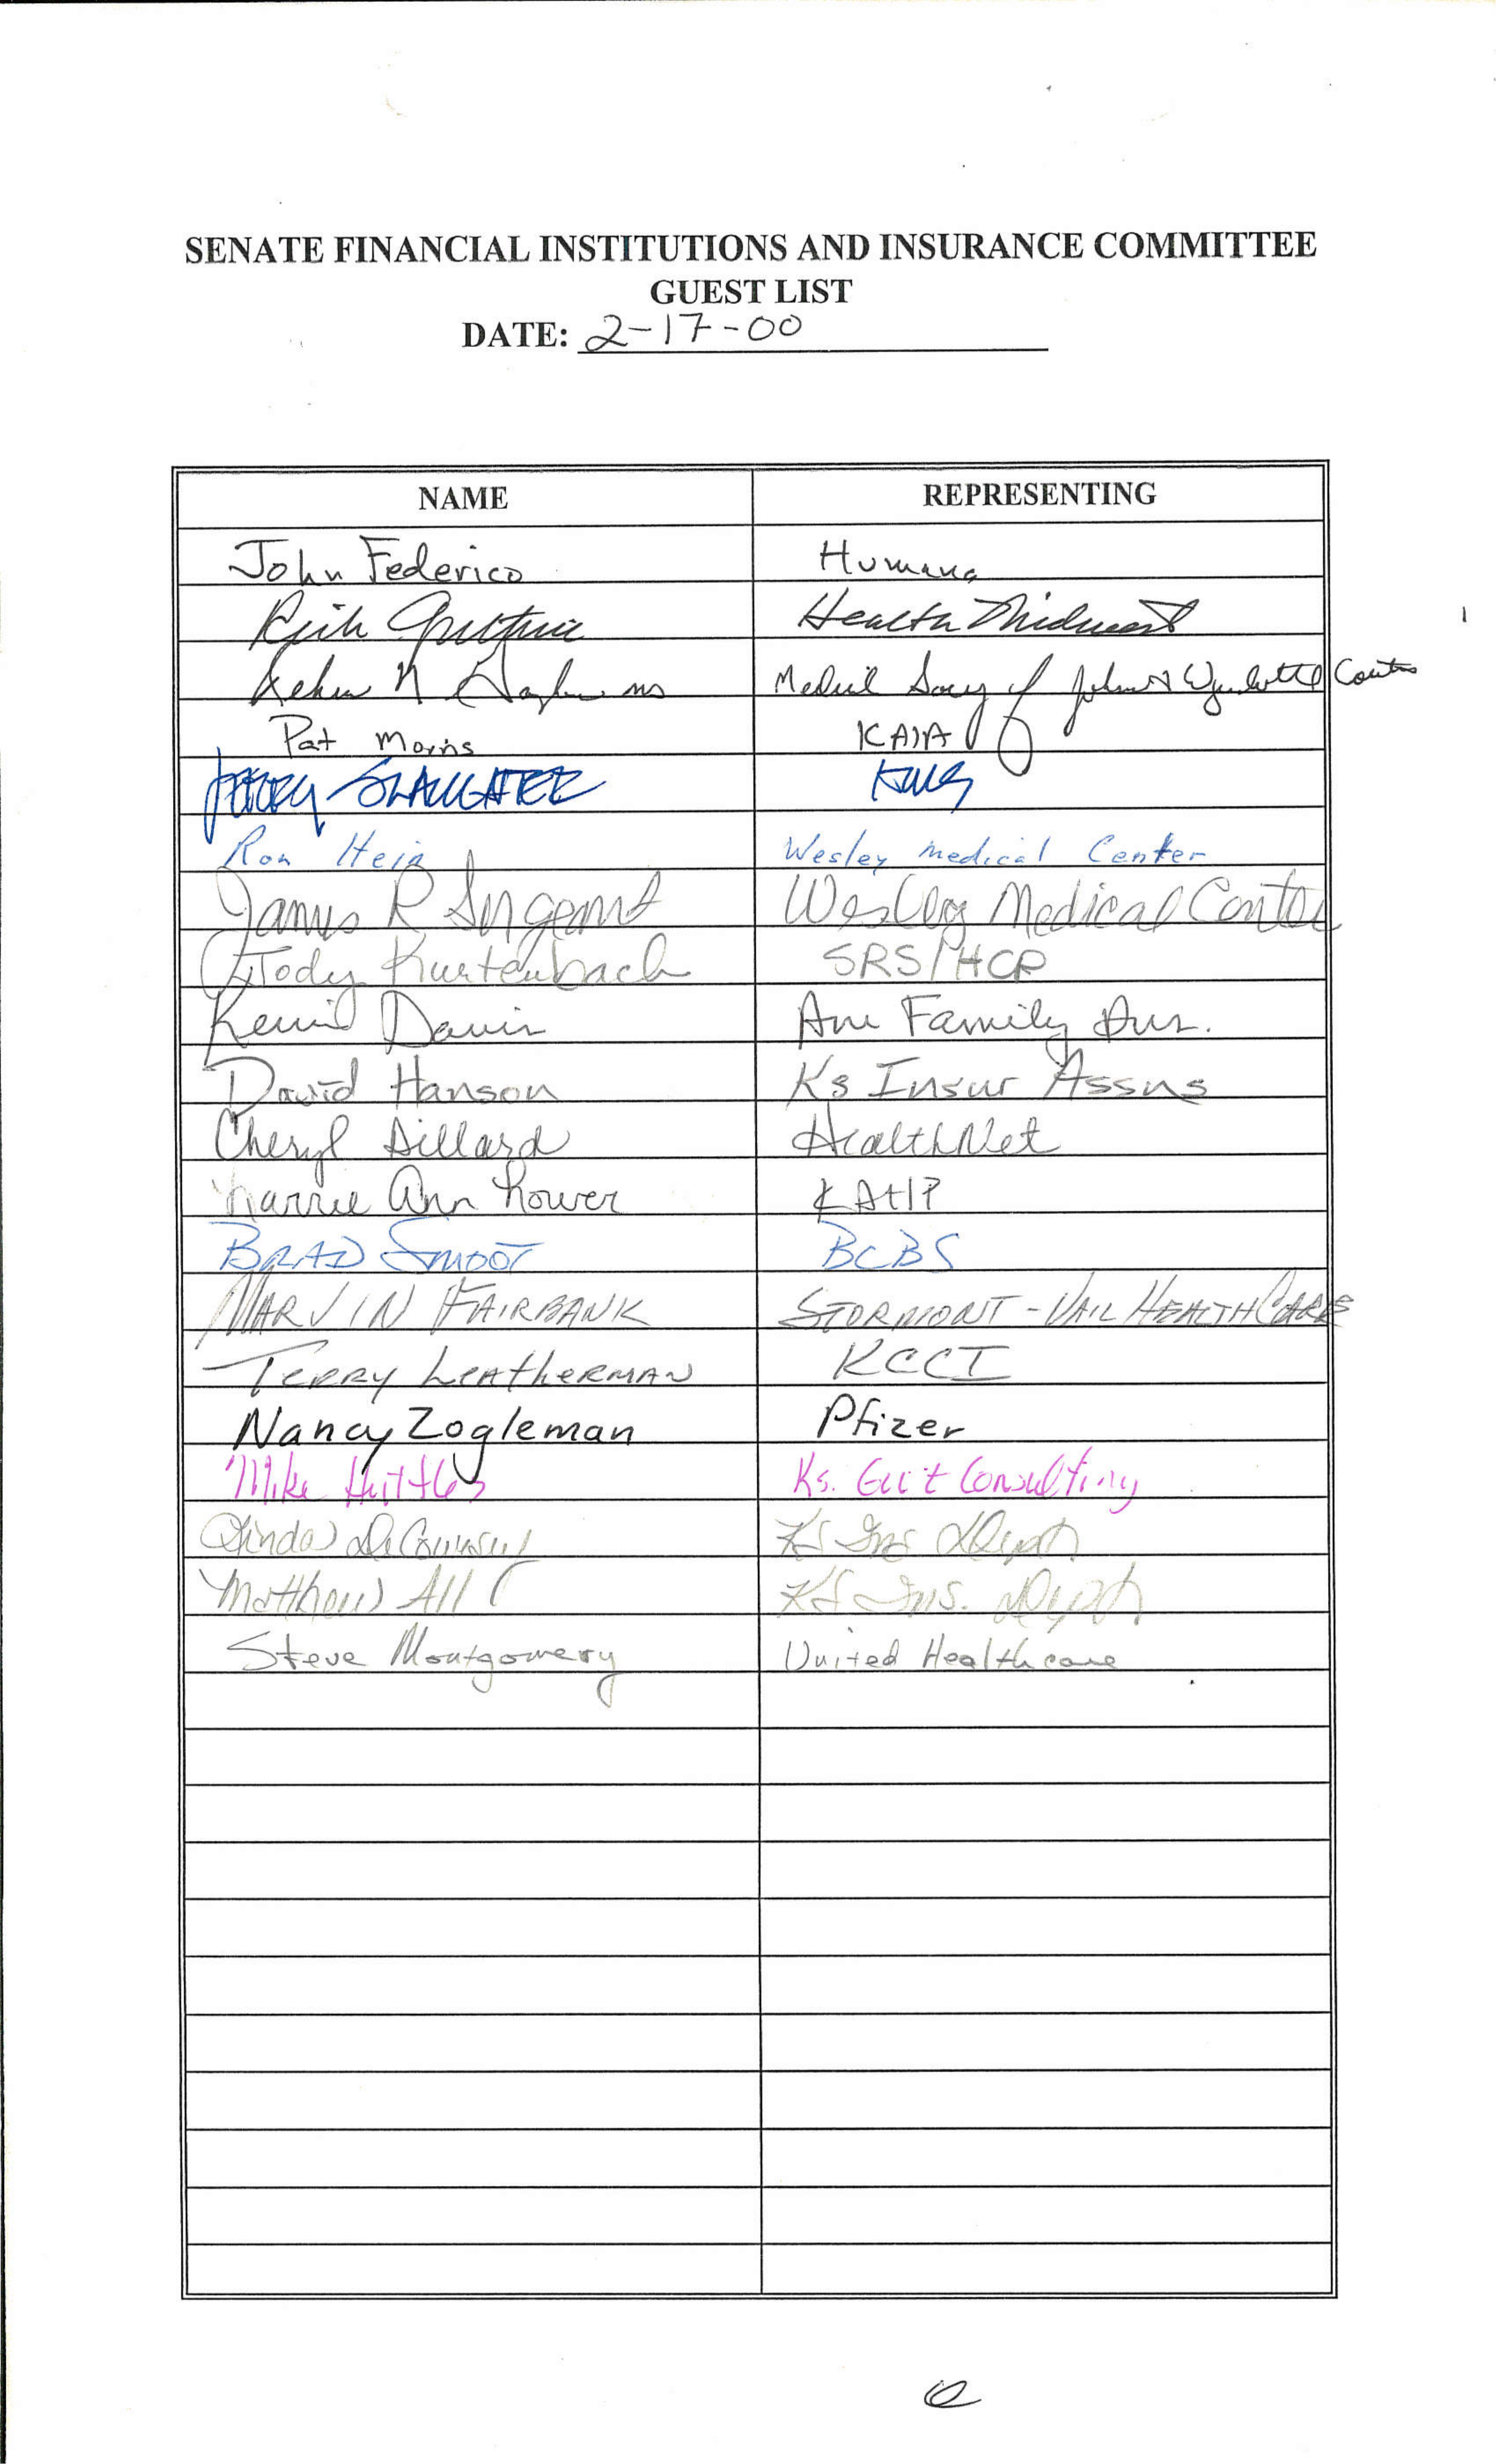 SENATE FINANCIAL INSTITUTIONS AND INSURANCE COMMITTEE
GUEST LIST
DATE: 2-17-00
NAME REPRESENTING
John Federico Humana
Health Midwest
Pat Morris KAIA
JERRY SLAUGHTER KMS
Ron Hein Wesley Medical Center
James R Wesley Medical Center
Jody Kurtenbach SRS/HCP
Kevin Davis Am Family Ins.
David Hanson Ks Insur Assns
Cheryl Dillard HealthNet
Ann KAHP
BRAD SMOOT BCBS
MARVIN FAIRBANK STORMONT-VAIL HEALTHCARE
TERRY LEATHERMAN KCCI
Nancy Zogleman Pfizer
Mike Huttles Ks. Gov't Consulting
Linda DeCoursey KS Ins Dept
Matthew All KS Ins. Dept
Steve Montgomery United Healthcare